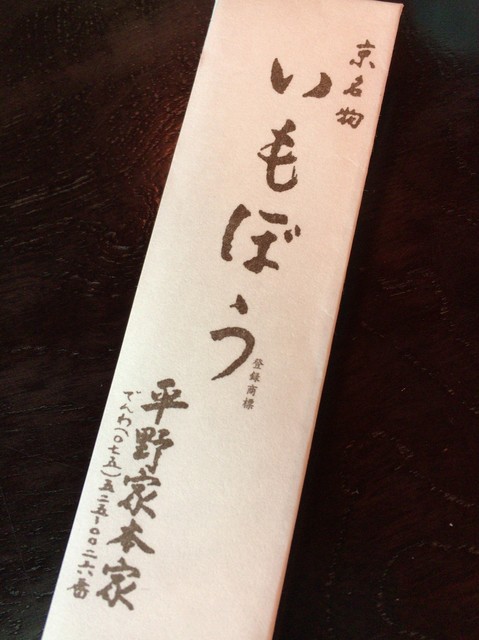 京名物
いもぼう
登録商標
平野家本家
でんわ(〇七五)五二五-〇〇二六番